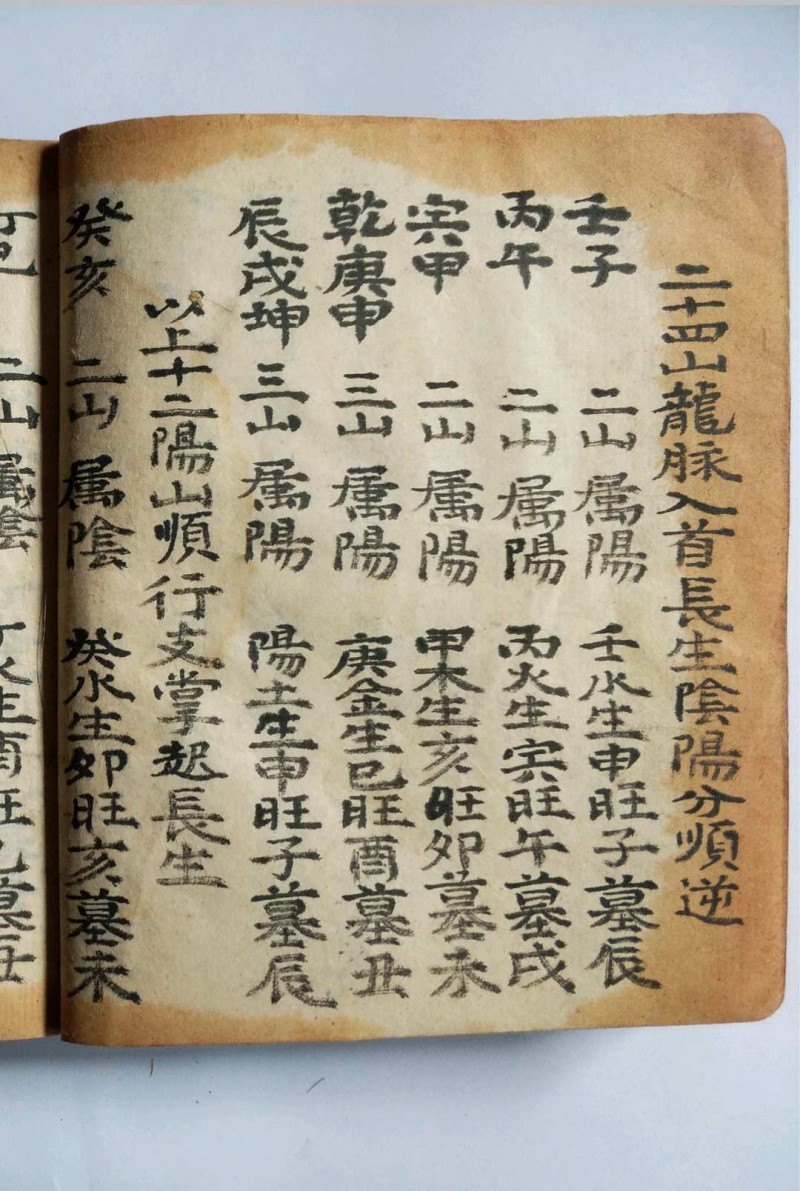 二十四山龍脉入首長生陰陽分順逆
壬子 二山属陽 壬水生申旺子墓辰
丙午 二山属陽 丙火生寅旺午墓戌
寅甲 二山属陽 甲木生亥旺卯墓未
乾庚申 三山属陽 庚金生巳旺酉墓丑
辰戌坤 三山属陽 陽土生申旺子墓辰
以上十二陽山順行支掌起長生
癸亥 二山属陰 癸水生卯旺亥墓未
二山属陰 丁水生酉旺 墓丑